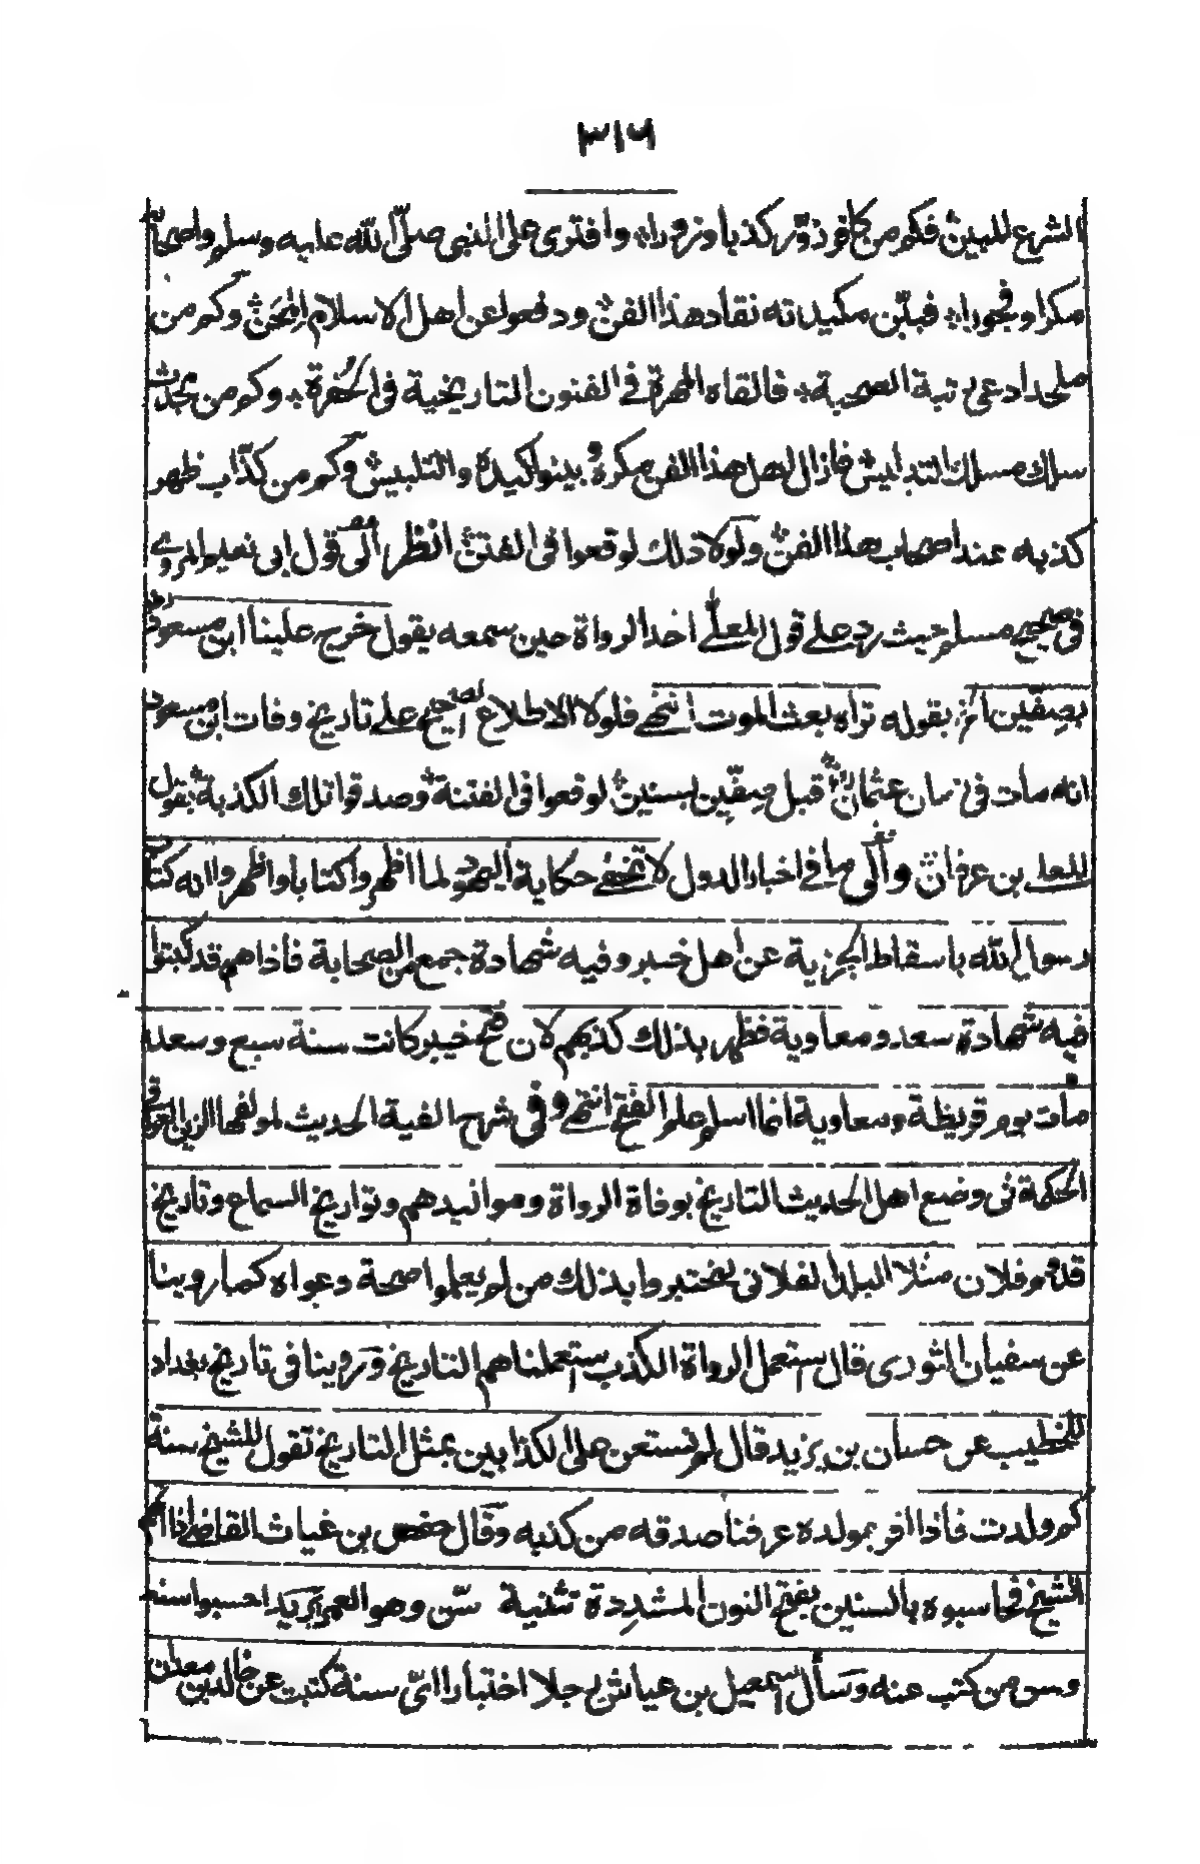 ٣١٦
الشرع المبين فكم من كافر ذوّر كذبا وزورا وافترى على النبي صلّى الله عليه وسلم واصحابه
مكرا وفجورا فبيّن مكيداته نقاد هذا الفن ودفعوا عن اهل الاسلام المحن وكم من
ملحد ادعى رتبة الصحبة فالقاه المهرة في الفنون التاريخية في الحُفرة وكم من محدث
سلك مسلك التدليس فازال اهل هذا الفن مكره وبينوا كيده والتلبيس وكم من كذّاب ظهر
كذبه عند اصحاب هذا الفن ولولا ذلك لوقعوا في الفتن انظر الى قول ابي نعيم المروي
في صحيح مسلم حيث رد على قول المعلى احد الرواة حين سمعه يقول خرج علينا ابن مسعود
بصِفّين الخ بقوله تراه بعث الموت انتهى فلولا الاطلاع الصحيح على تاريخ وفات ابن مسعود
انه مات في زمان عثمان قبل صِفّين بسنين لوقعوا في الفتنة وصدقوا تلك الكذبة بقول
المعلى بن عرفان والى ما في اخبار الدول لا تخفى حكاية اليهود لما اظهروا كتابا واظهروا انه كتاب
رسول الله باسقاط الجزية عن اهل خيبر وفيه شهادة جمع من الصحابة فاذا هم قد كتبوا
فيه شهادة سعد ومعاوية فظهر بذلك كذبهم لان فتح خيبر كانت سنة سبع وسعد
مات يوم قريظة ومعاوية انما اسلم عام الفتح انتهى وفي شرح الفية الحديث لمولفها الزين العراقي
الحكمة في وضع اهل الحديث التاريخ بوفاة الرواة ومواليدهم وتواريخ السماع وتاريخ
قدوم فلان مثلا البلد الفلاني ليختبروا بذلك من لم يعلموا صحة دعواه كما روينا
عن سفيان الثوري قال استعمل الرواة الكذب استعملنا هم التاريخ وروينا في تاريخ بغداد
للخطيب عن حسان بن يزيد قال لم نستعن على الكذابين بمثل التاريخ نقول للشيخ سنة
كم ولدت فاذا اقر بمولده عرفنا صدقه من كذبه وقال حفص بن غياث القاضي اذا اتهم
الشيخ فحاسبوه بالسنين بفتح النون المشدِدة تثنية سن وهو العمر يريد احسبوا سنه
وسن من كتب عنه وسأل اسمعيل بن عياش رجلا اختبارا ايّ سنة كتبت عن خالد بن معدان